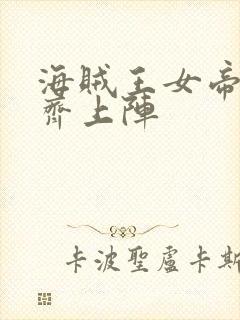 海贼王女帝
齊上陣
卡波聖盧卡斯